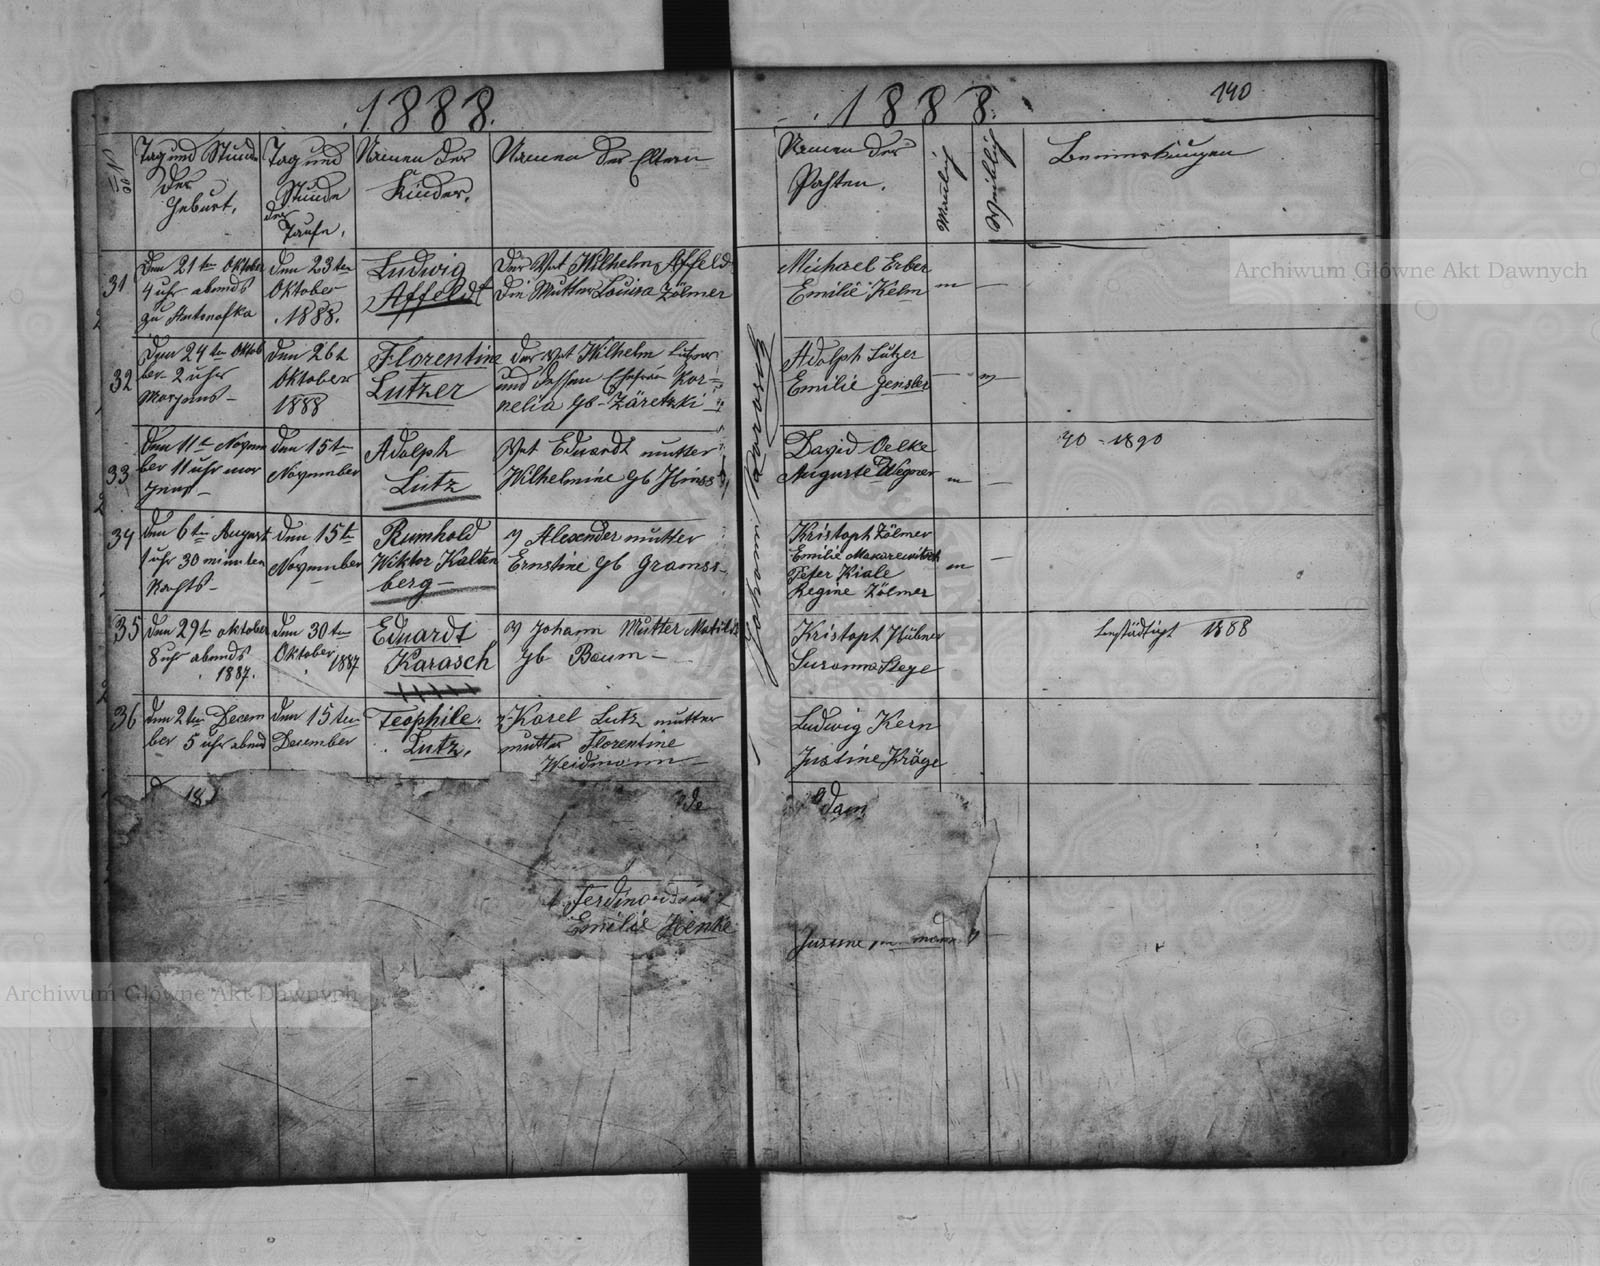 1888.
No
Tag und Stunde
der
Geburt.
Tag und
Stunde
der
Taufe.
Namen der
Kinder.
Namen der Eltern
31
Den 21ten Oktober
4 uhr abends
zu Antonofka
Den 23ten
Oktober
1888.
Ludwig
Affeldt
Der Vat Wilhelm Affeld
Die Mutter Louisa Zölmer
32
Den 24ten Oktob
ber 2 uhr
Morgens
Den 26t
Oktober
1888
Florentine
Lutzer
Der Vat Wilhelm Lutzer
und dessen Ehefrau Kor-
nelia gb- Zäretzki
33
Den 11t Novem
ber 11 uhr mor
gens
Den 15t
November
Adolph
Lutz
Vat Eduardt mutter
Wilhelmine gb Hinss
34
Den 6ten August
1 uhr 30 minuten
Nachts
Den 15t
November
Rumhold
Wiktor Kalten
berg
V Alexender mutter
Ernstine gb Gramss
35
Den 29ten oktober
8 uhr abends
1887.
Den 30ten
Oktober
1887
Eduardt
Karasch
V Johann Mutter Matild
gb Baum
36
Den 2ten Decem
ber 5 uhr abend
Den 15ten
December
Teophile.
Lutz.
V Karel Lutz mutter
mutter Florentine
Weidmann
18
de
Ferdinand
Emilie Henke
Johann Karasch
1888.
140
Namen der
Pathen.
Mänlich
Weiblich
Bemerkungen
Michael Erber
Emilie Kelm
m
Adolph Lutzer
Emilie Gensler
David Oelke
Auguste Wegner
m
90 - 1890
Kristoph Zölmer
Emilie Makarewitsch
Peter Kiale
Regine Zölmer
m
Kristoph Hübner
Susanna Stege
bestädtigt 1888
Ludwig Kern
Justine Kräge
dam
Archiwum Główne Akt Dawnych
Archiwum Główne Akt Dawnych